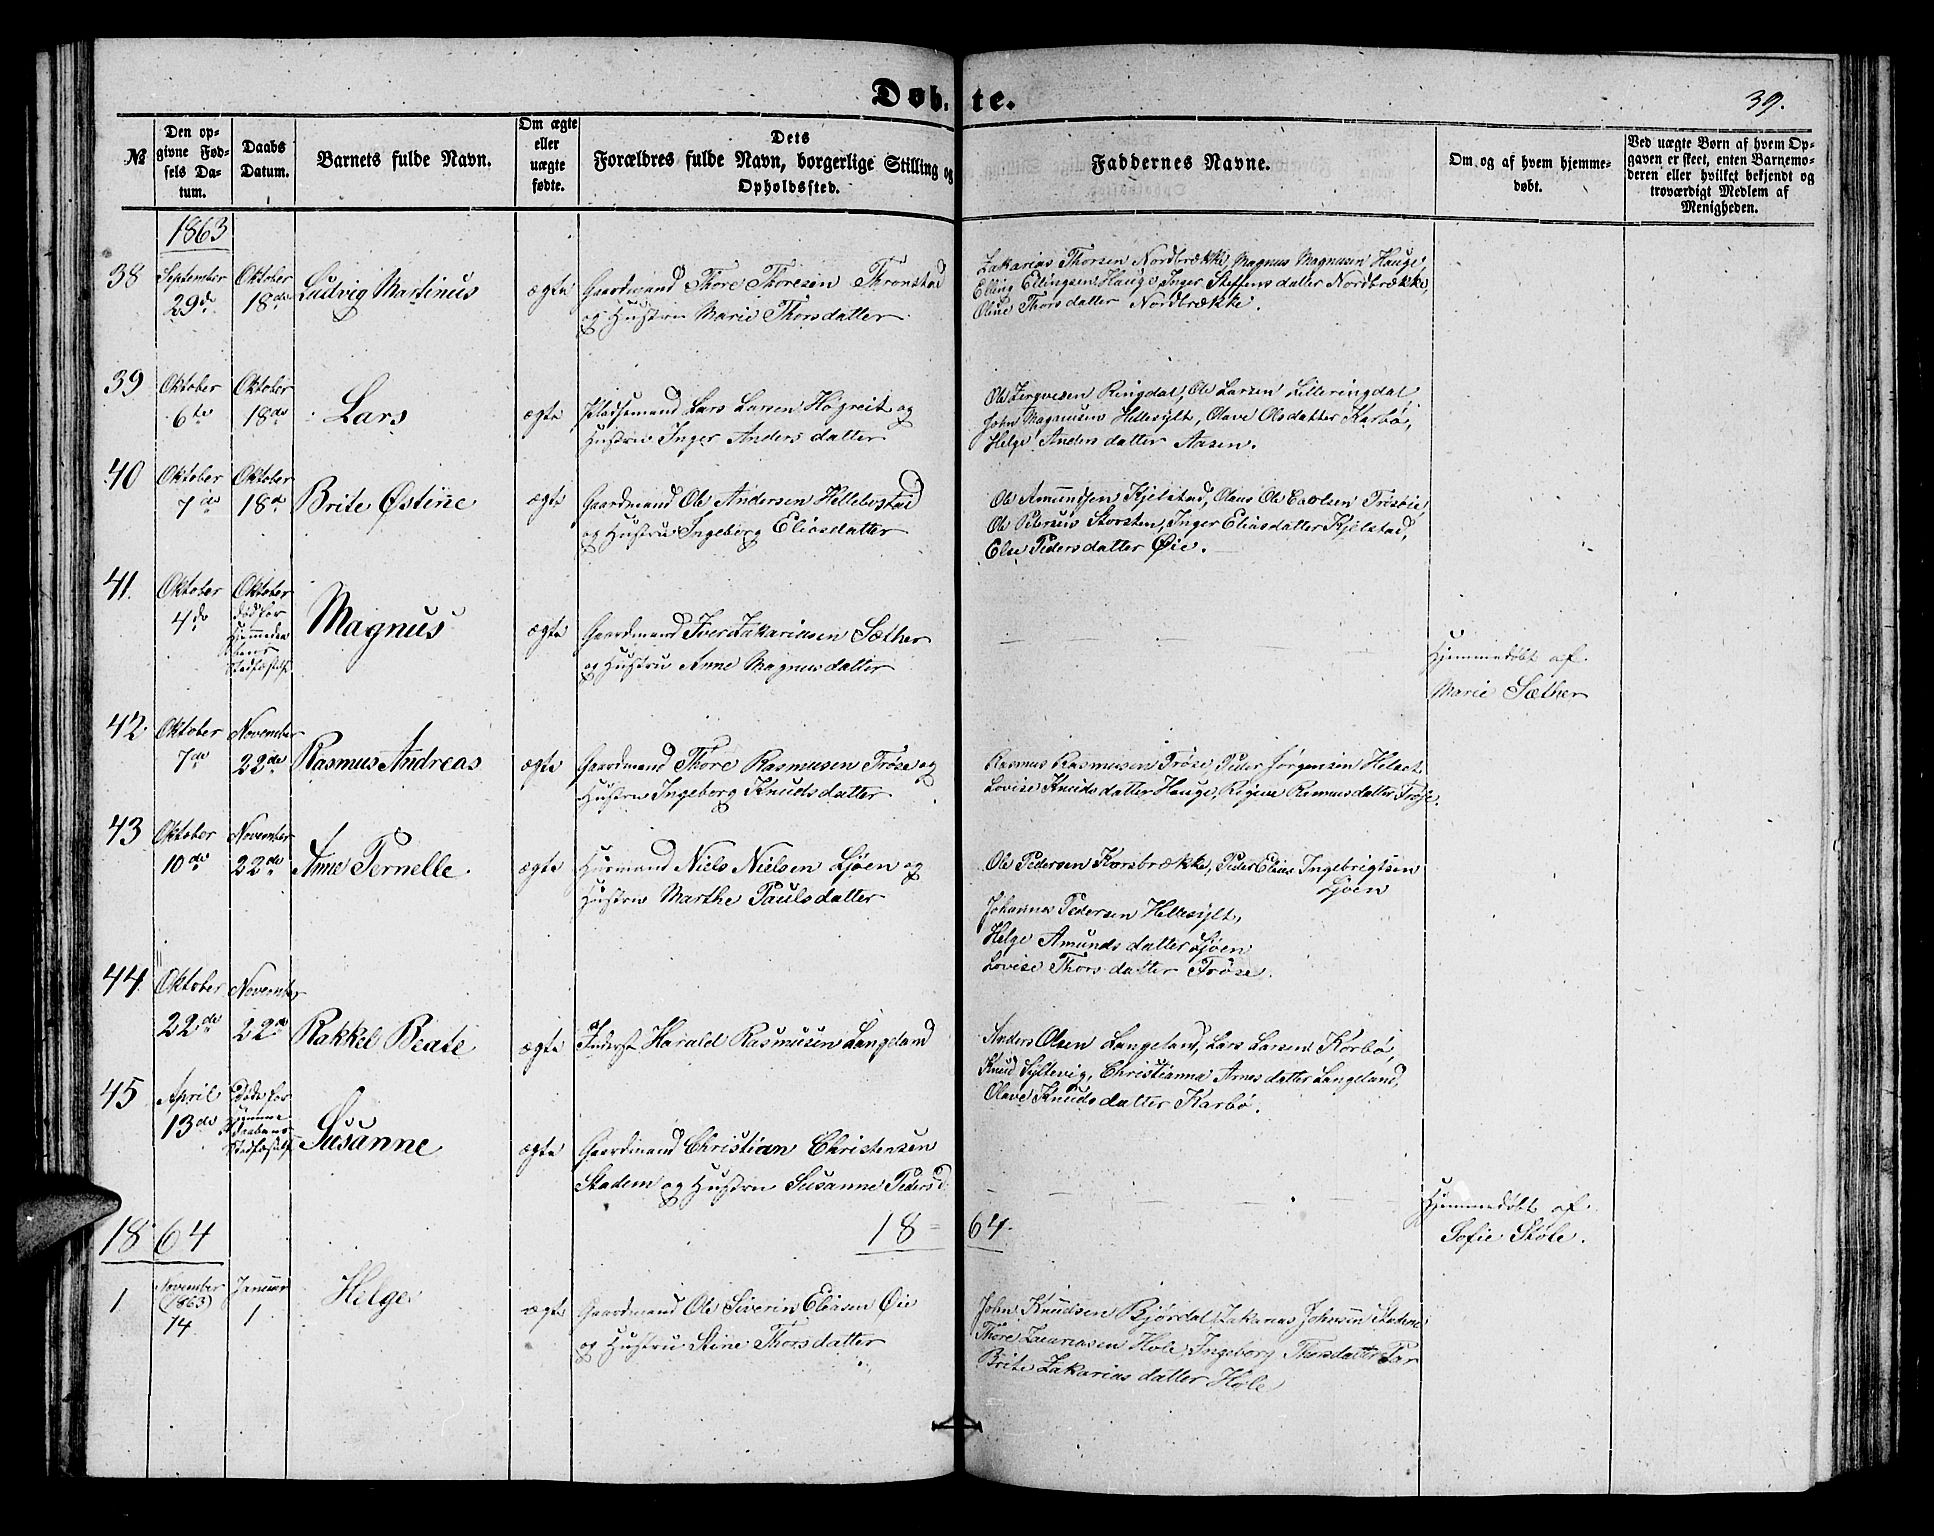 Døbte.
39.
№
Den opgivne Fødsels Datum.
Daabs Datum.
Barnets fulde Navn.
Om ægte eller uægte fødte.
Dets Forældres fulde Navn, borgerlige Stilling og Opholdssted.
Faddernes Navne.
Om og af hvem hjemmedøbt.
Ved uægte Børn af hvem Opgaven er skeet, enten Barnemoderen eller hvilket bekjendt og troværdigt Medlem af Menigheden.
1863
38 September 29de Oktober 18de Ludvig Martinus ægte Gaardmand Thore Thoresen Thronstad
og Hustru Marie Thorsdatter
Zakarias Thorsen Nordbrække, Magnus Magnusen Hauge,
Elling Ellingsen Hauge, Inger Steffensdatter Nordbrække,
Oline Thorsdatter Nordbrække.
39 Oktober 6te Oktober 18de Lars ægte Pladsemand Lars Larsen Høgreit og
Hustru Inger Andersdatter
Ole Ringdal, Ole Larsen Lilleringdal,
John Magnusen Hellesylt, Olave Olsdatter Karbø,
Helge Andersdatter Aasen.
40 Oktober 7de Oktober 18de Brite Østine ægte Gaardmand Ole Andersen Hellebostad
og Hustru Ingeborg Eliasdatter
Ole Amundsen Kjelstad, Olaus Ole Frøsøie,
Ole Petersen Storsten, Inger Eliasdatter Kjelstad,
Else Pedersdatter Øie.
41. Oktober 4de Oktober død før Magnus ægte Gaardmand Iver Zakariasen Sæther
og Hustru Anne Magnusdatter
Hjemmedøbt af
Marie Sæther
42. Oktober 7de November 22de Rasmus Andreas ægte Gaardmand Thore Rasmusen Frøse og
Hustru Ingeborg Knudsdatter
Rasmus Rasmusen Frøse, Peder Jørgensen
Lovise Knudsdatter Hauge, Regine Rasmusdatter Frøse.
43 Oktober 10de November 22de Anne Pernelle ægte Husmand Niels Nielsen Ljøen og
Hustru Marthe Paulsdatter
Ole Pedersen Korsbrække, Peder Elias Ingebrigtsen
Ljøen
Johannes Pedersen Hellesylt,
Helge Amundsdatter Ljøen
Lovise Thorsdatter Frøse.
44. Oktober 22de November 22de Rakkel Beate ægte Inderst Harald Rasmusen Langeland
Anders Olsen Langeland, Lars Larsen Korbø,
Knud Syltevig, Christianna Arnesdatter Langeland,
Olave Knudsdatter Karbø.
45 April 13de Døde før Susanne ægte Gaardmand Christian Christensen
Stadem og Hustru Susanne Pedersd
Hjemmedøbt af
Sofie Støle.
1864 18 = 64.
1 November (1863) 14 Januar 1 Helge ægte Gaardmand Ole Siverin Eliasen Øie
og Hustru Stine Thorsdatter
John Knudsen Bjørdal, Zakarias Johnsen
Thore Hole, Ingeborg Thorsdatter
Brite Zakariasdatter Hole